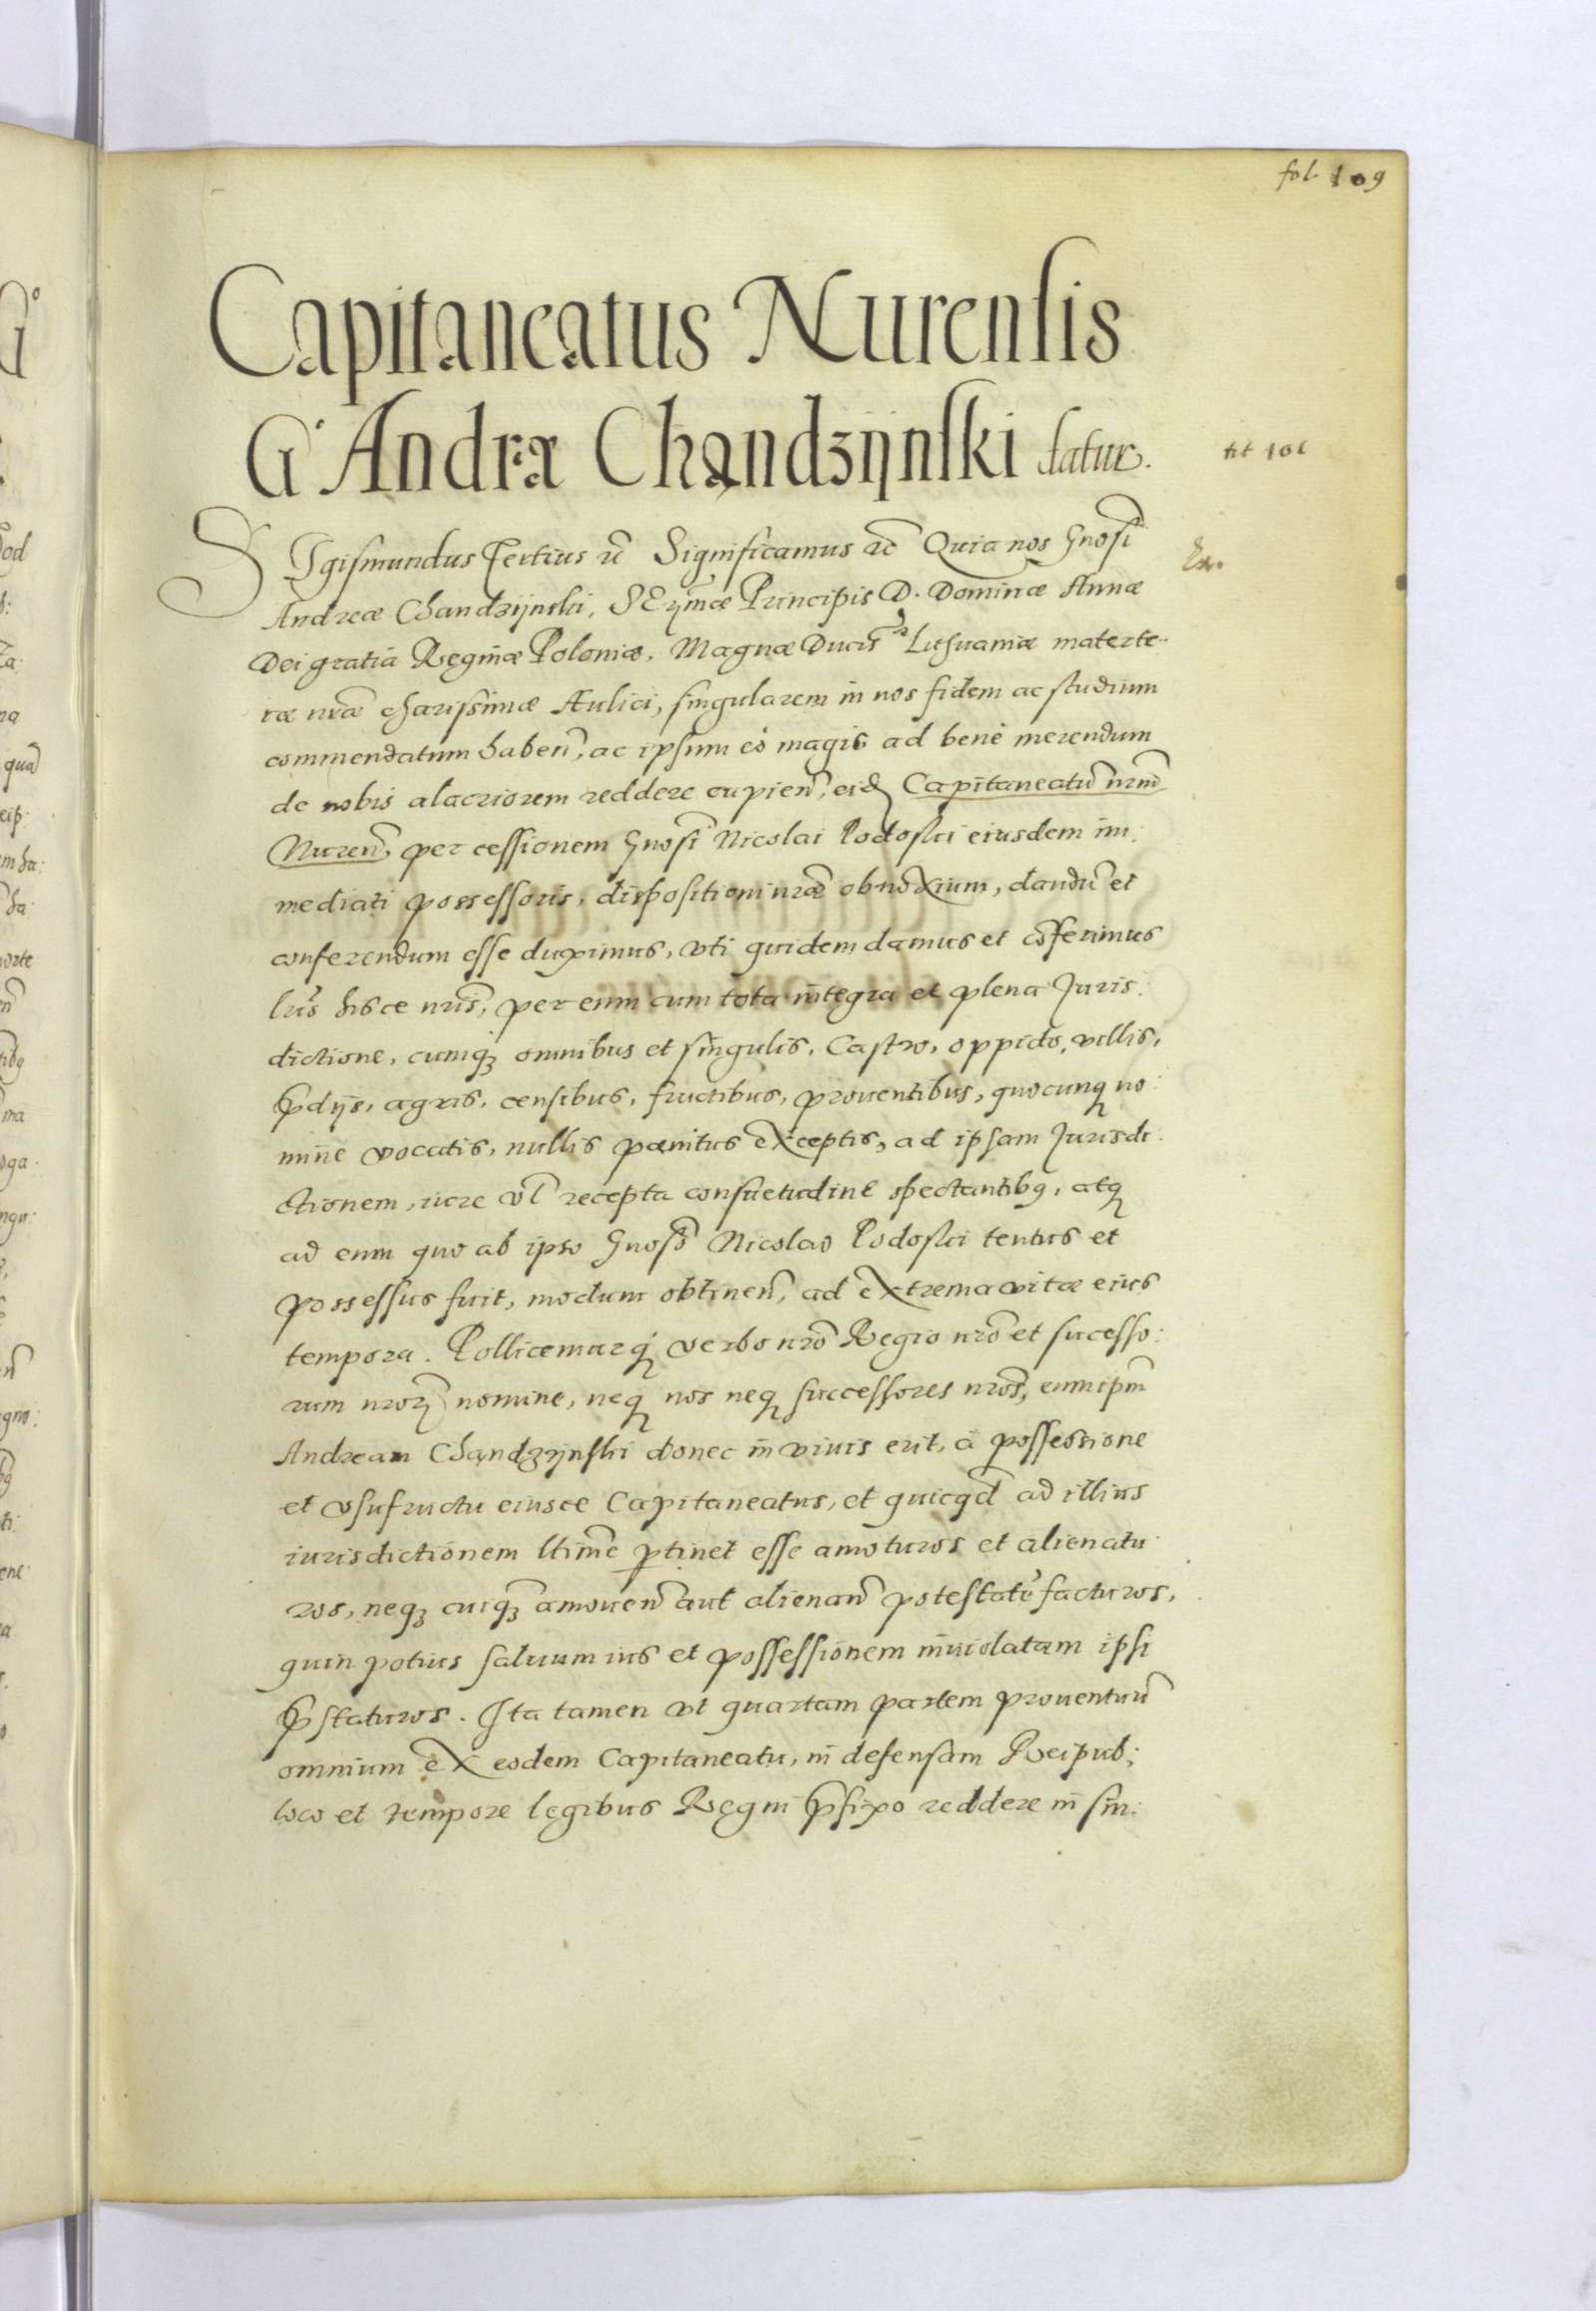 fol. 109
Capitaneatus Nurensis
G° Andreæ Chandzijnski datur.
tit 101
SIgismundus Tertius etc Significamus etc Quia nos Gnosi
Andreæ Chandzijnski, SErjmæ Principis D. Dominæ Annæ
Dei gratia Reginæ Poloniæ, Magnæ Ducis Lithuaniæ materte-
ræ nræ charissimæ Aulici, singularem in nos fidem ac studium
commendatum haben, ac ipsum eò magis ad benè merendum
de nobis alacriorem reddere cupien, eid Capitaneatū nrm
Nuren, per cessionem Gnosi Nicolai Podoski eiusdem im:
mediati possessoris, dispositioni nræ obnoxium, dandū et
conferendum esse duximus, vti quidem damus et cōferimus
lris hisce nris, per eum cum tota integra et plena Juris:
dictione, cumq; omnibus et singulis, Castro, oppido, villis,
p̄dijs, agris, censibus, fructibus, prouentibus, quocunq no:
mine vocatis, nullis pænitus exceptis, ad ipsam Jurisdi:
ctionem, iure vl recepta consuetudine spectantibg, atq
ad eum quo ab ipso Gnoso Nicolao Podoski tentus et
possessus fuit, modum obtinen, ad extrema vitæ eius
tempora. Pollicemurq verbo nro Regio nro et sucesso:
rum nror nomine, neq nos neq successores nros, eum ipm
Andream Chandzijnski donec in viuis erit, à possessione
et vsufructu eiusce Capitaneatus, et quicqd ad illius
iurisdictionem ltime ptinet esse amoturos et alienatu
ros, neq; cuiq; amouen aut alienan potestatē facturos,
quin potius saluum ius et possessionem inuiolatam ipsi
p̄staturos. Ita tamen vt quartam partem prouentuū
omnium ex eodem Capitaneatu, in defensam Reipub:
loco et tempore legibus Regni p̄fixo reddere in sin: